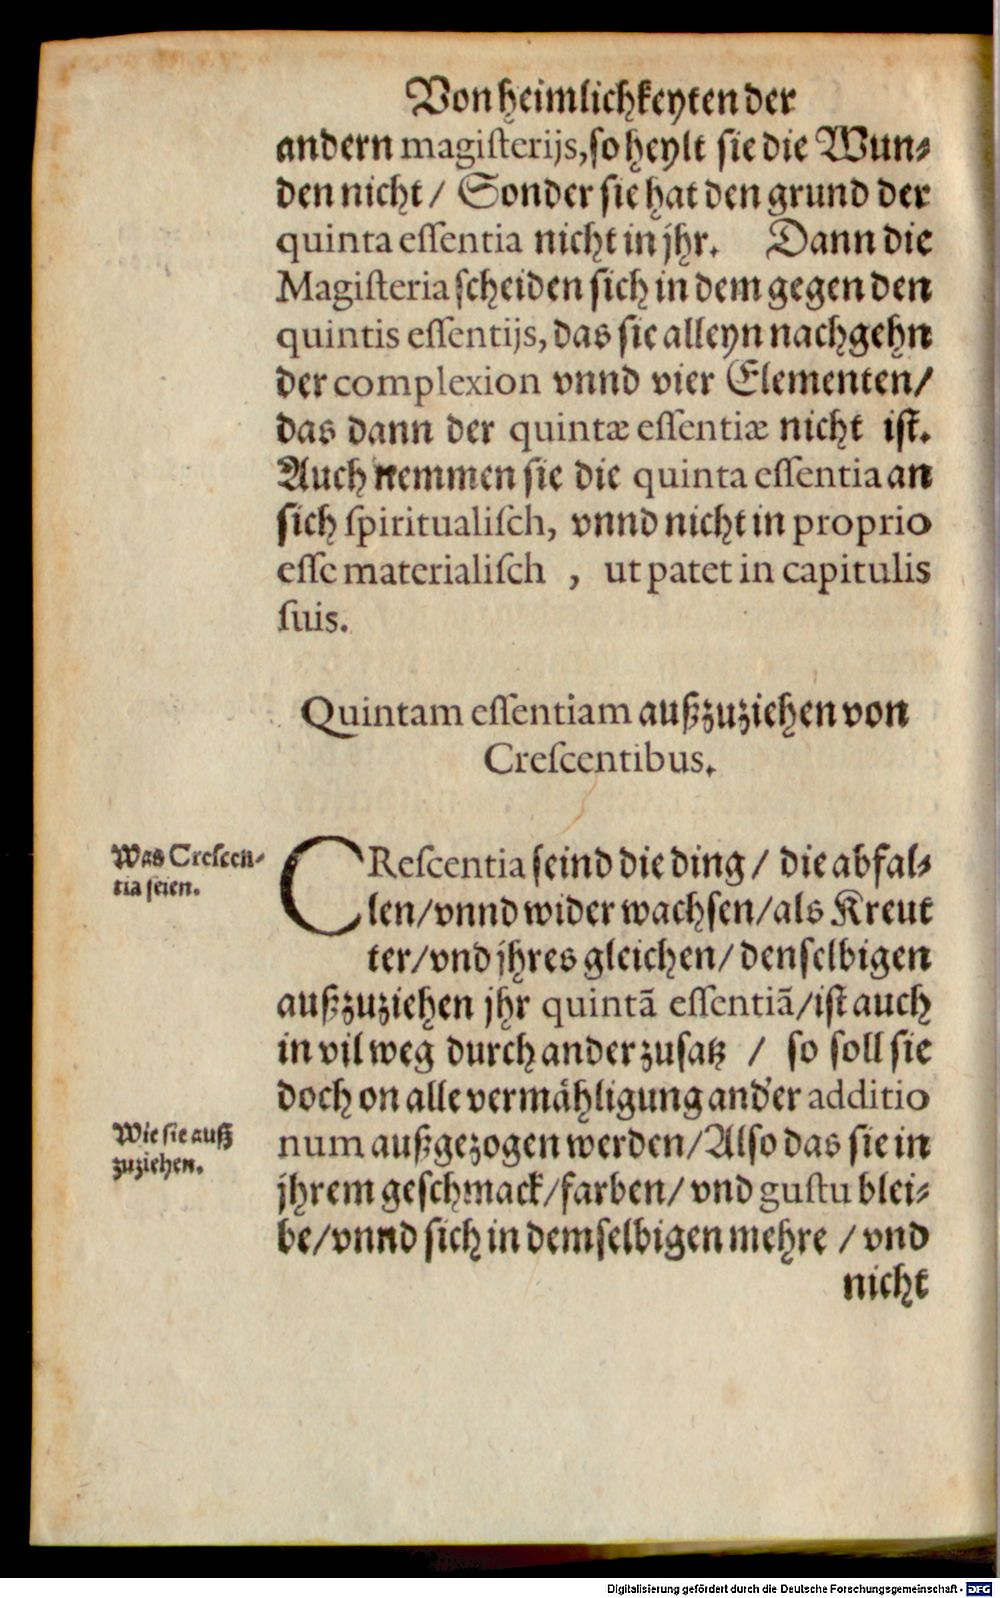 Von heimlichkeyten der
andern magiſterijs, ſo heylt ſie die Wun⸗
den nicht / Sonder ſie hat den grund der
quinta eſſentia nicht in jhr. Dann die
Magiſteria ſcheiden ſich in dem gegen den
quintis eſſentijs, das ſie alleyn nachgehn
der complexion vnnd vier Elementen /
das dann der quintæ eſſentiæ nicht iſt.
Auch nemmen ſie die quinta eſſentia an
ſich ſpiritualiſch, vnnd nicht in proprio
eſſe materialiſch , ut patet in capitulis
ſuis.
Quintam eſſentiam außzuziehen von
Creſcentibus.
Was Creſcen⸗
tia ſeien.
CReſcentia ſeind die ding / die abfal⸗
len / vnnd wider wachſen / als Kreut
ter / vnd jhres gleichen / denſelbigen
außzuziehen jhr quintā eſſentiā / iſt auch
in vil weg durch ander zuſatz / ſo ſoll ſie
doch on alle vermähligung and'er additio
Wie ſie auß
zuziehen.
num außgezogen werden / Alſo das ſie in
jhrem geſchmack / farben / vnd guſtu blei⸗
be / vnnd ſich in demſelbigen mehre / vnd
nicht
Digitalisierung gefördert durch die Deutsche Forschungsgemeinschaft - DFG